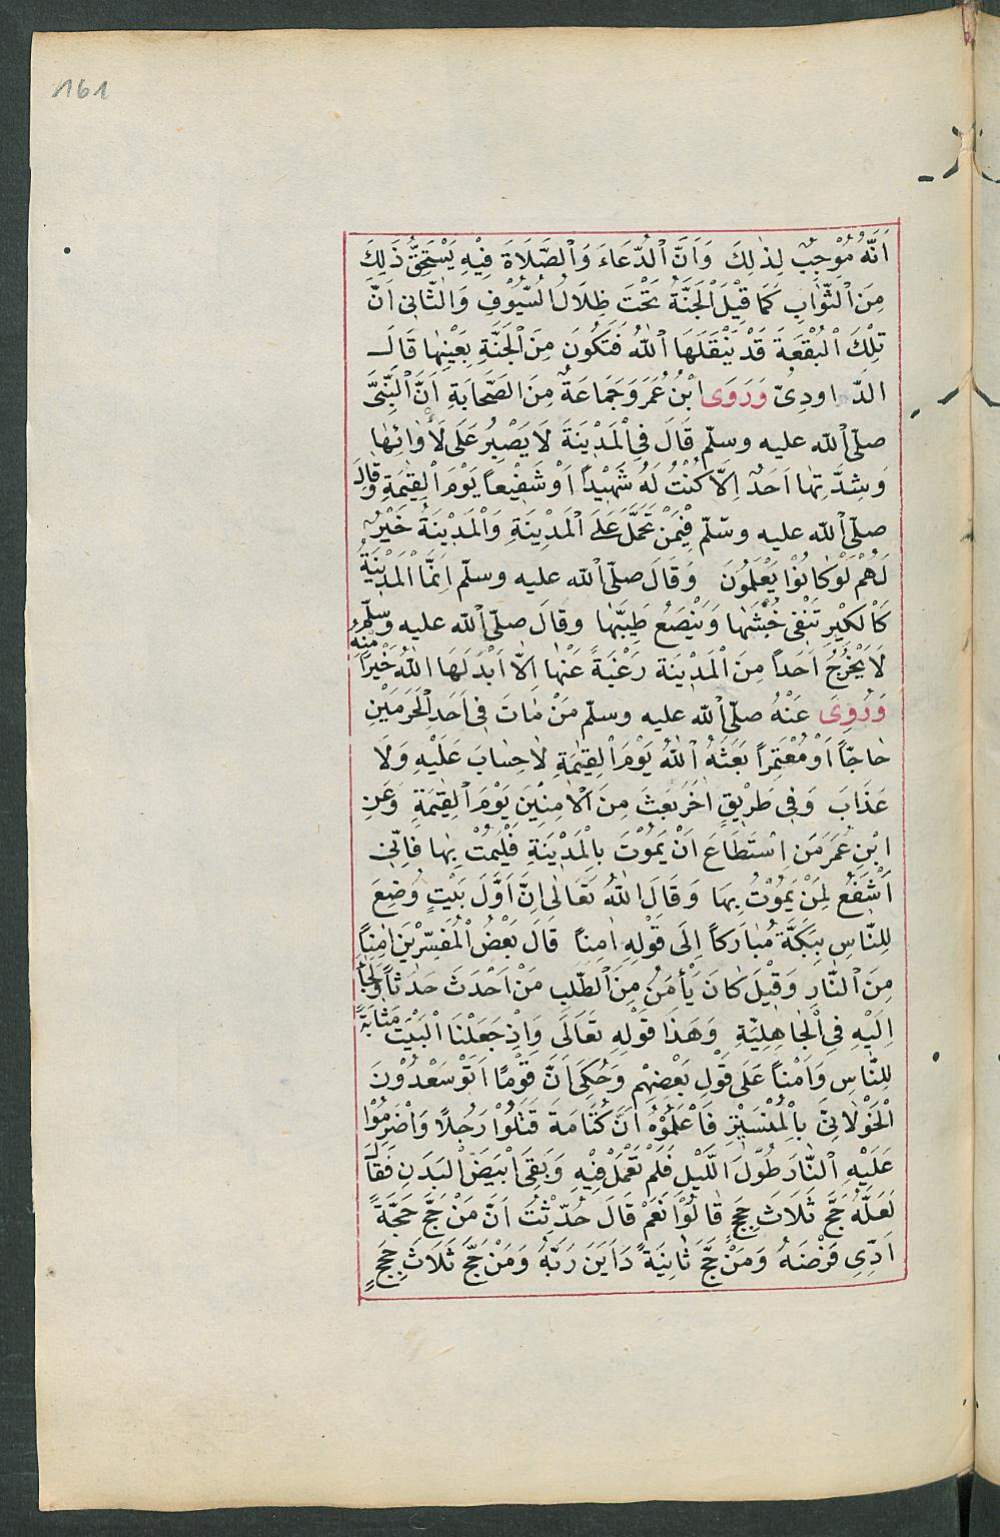 161
اَنَّهُ مُوْجِبٌ لِذٰلِكَ وَاَنَّ الدُّعَاءَ وَالصَّلَاةَ فِيْهِ يَسْتَحِقُّ ذَلِكَ
مِنَ الثَّوَابِ كَمَا قِيْلَ الْجَنَّةُ تَحْتَ ظِلَالُ السُّيُوْفِ وَالثَّانِى اَنَّ
تِلْكَ الْبُقْعَةَ قَدْ يَنْقُلَهَا اللهُ فَتَكُونَ مِنَ الْجَنَّةِ بِعَيْنِهَا قَالَ
الدَّاوُدِىّ وَرَوَى ابْنُ عُمَرَ وَجَمَاعَةٌ مِنَ الصَّحَابَةِ اَنَّ النَّبِىَّ
صلّى الله عليه وسلّم قَالَ فِى الْمَدْيَنَةَ لَا يَصْبِرُ عَلَى لَأْوَائِهَا
وَشِدَّتِهَا اَحَدٌ اِلَّا كُنْتُ لَهُ شَهِيْدًا اَوْ شَفِيْعاً يَوْمَ الْقِيٰمَةِ وَقَالَ
صلّى الله عليه وسلّم فِيْمَنْ تَحَمَّلَ عَلَىَ الْمَدِيْنَةِ وَالْمَدْيَنَةُ خَيْرٌ
لَهُمْ لَوْ كَانُوْا يَعْلَمُوْنَ وَقَالَ صلّى الله عليه وسلّم اِنَّمَا الْمَدْيَنَةُ
كَالْكِيْرِ تَنْفِى خُبْثَهَا وَيَنْصَعُ طِيْبَهَا وقَالَ صلّى الله عليه وسلّم
لَا يَخْرُجُ اَحَداً مِنَ الْمَدْيَنَة رَغْبَةً عَنْهَا اِلَّا اَبْدَلَهَا اللهُ خَيْراً مِنْهُ
وَرُوِىَ عَنْهُ صلّى الله عليه وسلّم مَنْ مَاتَ فِى اَحَدِ الْحَرَمَيْنِ
حَاجًّا اَوْ مُعْتَمِراً بَعَثَهُ اللهُ يَوْمَ الْقِيٰمَةِ لَاحِسَابَ عَلَيْهِ وَلَا
عَذَابَ وَفِى طَرِيْقٍ اٰخَرَ بُعِثَ مِنَ الْاٰمِنِيْنَ يَوْمَ الْقِيٰمَةِ وَعَنِ
ابْنِ عُمَرَ مَنِ اسْتَطَاعَ اَنْ يَمُوْتَ بِالْمَدْيَنَةِ فَلْيَمُتْ بِهَا فَاِنِّى
اَشْفَعُ لِمَنْ يَمُوْتُ بِهَا وَقَالَ اللهُ تَعَالٰى اِنَّ اَوَّلَ بَيْتٍ وُضِعَ
لِلنَّاسِ بِبَكَّةَ مُبَارَكاً اِلَى قَوْلِهِ اٰمِناً قَالَ بَعْضُ الْمُفَسِّرْيَنَ اٰمِناً
مِنَ النَّارِ وَقِيْلَ كَانَ يَأْمَنُ مِنَ الطَّلَبِ مَنْ اَحْدَثَ حَدَثاً وَلَجَأَ
اِلَيْهِ فِى الْجَاهِلِيَّةِ وَهَذَا قَوْلِهِ تَعَالَى وَاِذْ جَعَلْنَا الْبَيْتَ مَثَابَةً
لِلنَّاسِ وَاَمْناً عَلَى قَوْلِ بَعْضِهِمْ وَحُكِىَ اَنَّ قَوْمًا اَتَوْ سَعْدُوْنَ
الْخَوْلَانِىَّ بِالْمُنْسَتِيْرِ فَاَعْلَمُوْهُ اَنَّ كُتَامَةَ قَتَلُوْا رَجُلًا وَاضْرَمُوْا
عَلَيْهِ النَّارَ طُوْلَ اللَّيْلِ فَلَمْ تَعْمَلْ فِيْهِ وَبَقِىَ اَبْيَضَ الْبَدَنِ فَقَالَ
لَعَلَّهُ حَجَّ ثَلَاثَ حِجَجٍ قَالُوْا نَعَمْ قَالَ حُدِّثْتُ اَنَّ مَنْ حَجَّ حَجَّةً
اَدّٰى فَرْضَهُ وَمَنْ حَجَّ ثَانِيَةً دَايَنَ رَبَّهُ وَمَنْ حَجَّ ثَلَاثَ حِجَجٍ